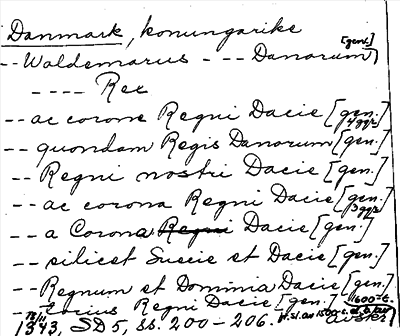 Danmark, konungarike
-- Waldemarus --- Danorum [gen.]
---- Rex
-- ac corone Regni Dacie [gen. 4 ggr]
-- quondam Regis Danorum [gen.]
-- Regni nostri Dacie [gen.]
-- ac corona Regni Dacie [gen. 3 ggr]
-- a Corona Regni Dacie [gen.]
-- silicet Suecie et Dacie [gen.]
-- Regnum et Dominia Dacie [gen.]
-- tocius Regni Dacie [gen.]
18/11 1343, SD 5, ss. 200-206.